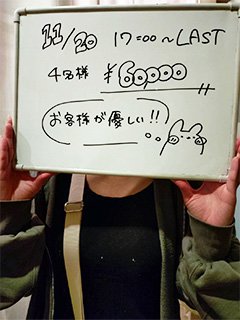 11/20 17:00~LAST
4名様 ¥60,000
お客様が優しい!!